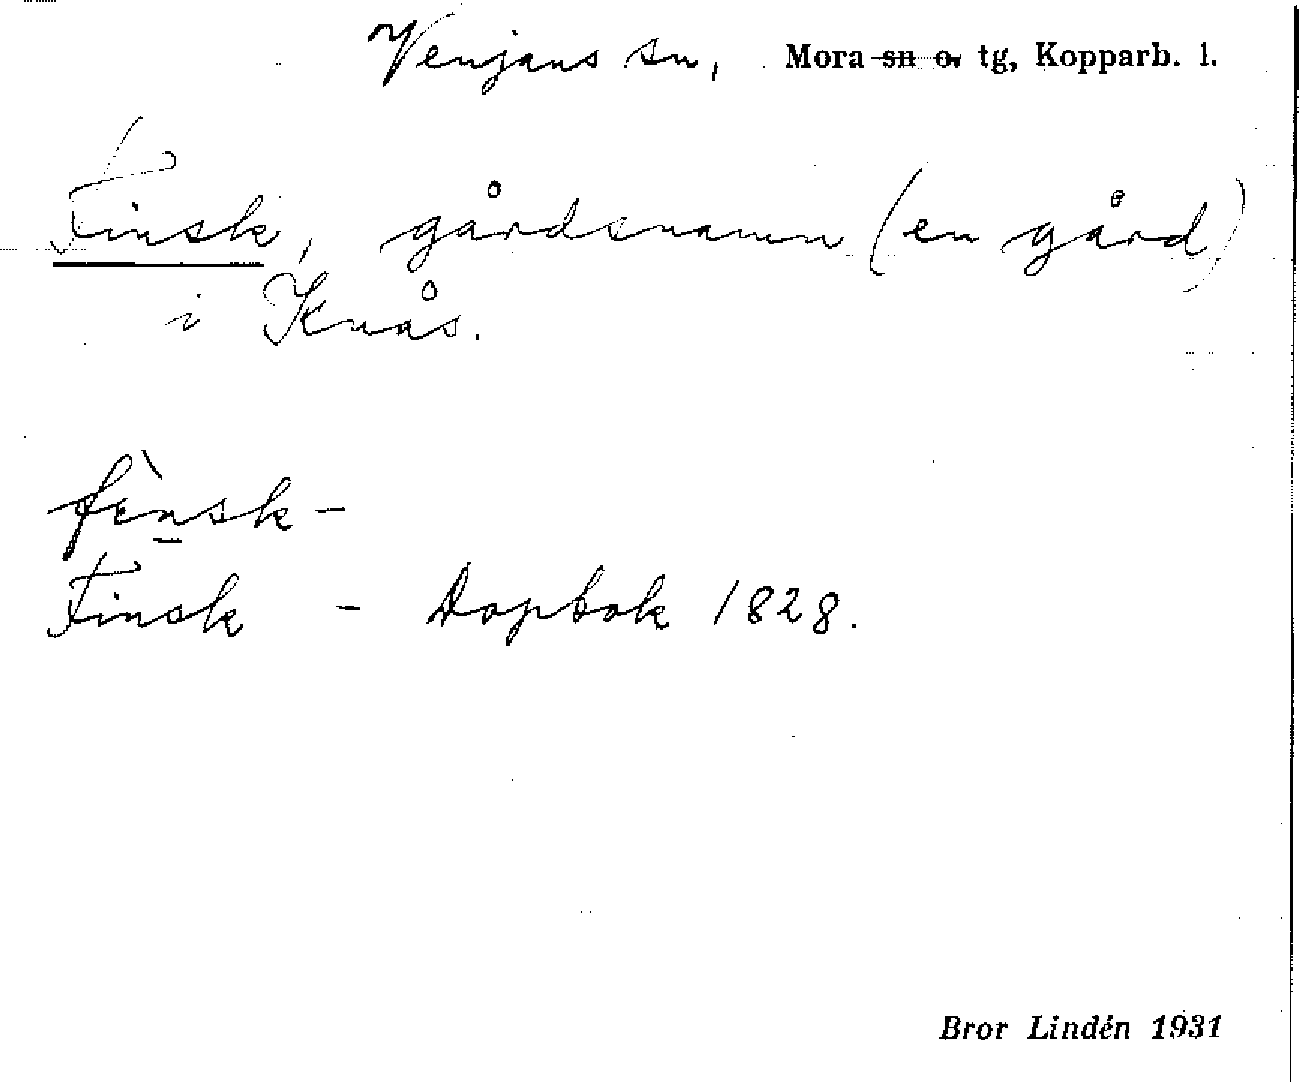 Venjans sn, Mora sn o. tg, Kopparb. l.
Finsk, gårdsnamn (en gård)
i Knås.
fìnsk -
Finsk - Dopbok 1828.
Bror Lindén 1931